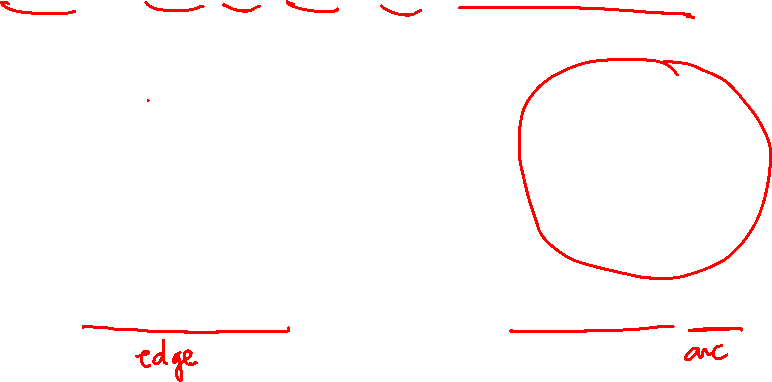 edge arc